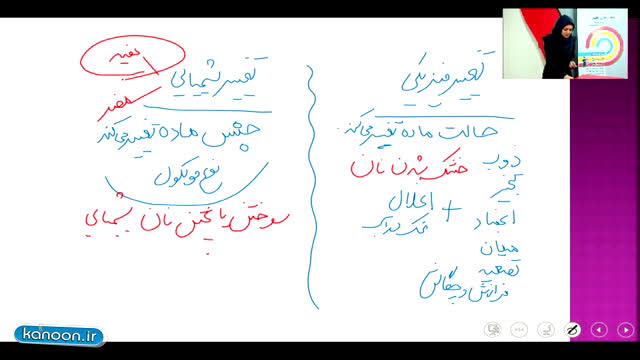 تغییر فیزیکی
حالت ماده تغییر می‌کند
ذوب
خشک شدن نان
تبخیر
انحلال
+
نمک در آب
انجماد
میعان
تصعید
فرازش و چگالش
تغییر شیمیایی
مفید
مضر
جنس ماده تغییر می‌کند
نوع مولکول
سوختن یا پختن نان شیمیایی
kanoon.ir